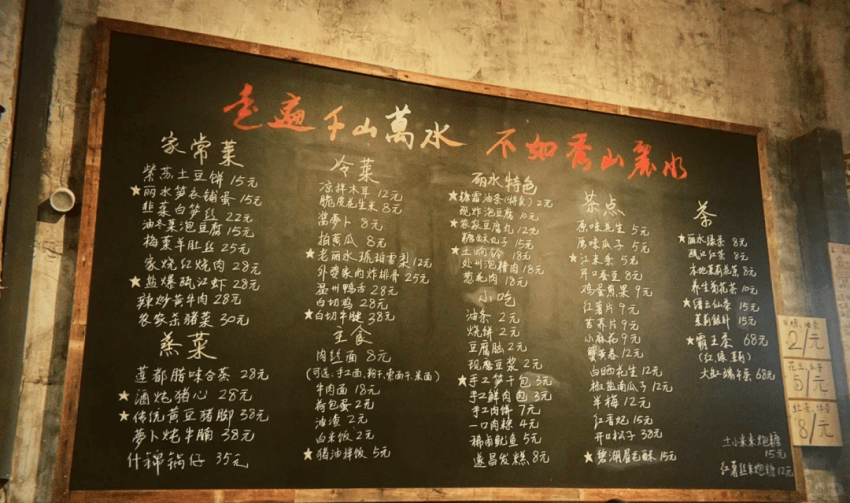 走遍千山萬水 不如秀山麗水
家常菜
紫苏土豆饼 15元
★丽水笋衣铺蛋 15元
韭菜白笋丝 22元
油冬菜泡豆腐 15元
梅菜羊肚丝 25元
家烧红烧肉 28元
★盐爆瓯江虾 28元
辣炒黄牛肉 28元
农家杀猪菜 30元
蒸菜
莲都腊味合蒸 28元
★酒炖猪心 28元
★传统黄豆猪脚 38元
萝卜炖牛腩 38元
什锦锅仔 35元
冷菜
凉拌木耳 12元
脆皮花生米 8元
酱萝卜 8元
拍黄瓜 8元
★老丽水琥珀雪梨 12元
外婆家肉炸排骨 25元
温州鸭舌 28元
白切鸡 28元
★白切牛腱 38元
主食
肉丝面 8元
(可选:手工面,粉干,索面干,米面)
牛肉面 18元
荷包蛋 2元
油渣 2元
白米饭 2元
★猪油拌饭 5元
丽水特色
★梅雪油条 2元
现炸泡豆腐 10元
★农家豆腐丸 12元
糖酥丸子 15元
★土响铃 18元
处州泡精肉 18元
葱花肉 18元
小吃
油条 2元
烧饼 2元
豆腐脑 2元
现磨豆浆 2元
★手工笋干包 3元
手工鲜肉包 3元
手工肉饼 7元
一口肉粿 4元
稀卤鱿鱼 5元
遂昌发糕 8元
茶点
原味花生 5元
原味瓜子 5元
★红米条 5元
开口蚕豆 8元
鸡蛋煎果 9元
红薯片 9元
苦荞片 9元
小麻花 9元
蟹黄卷 12元
白晒花生 12元
椒盐南瓜子 12元
半梅 12元
红香妃 15元
开口松子 38元
★碧湖眉毛酥 15元
茶
★丽水绿茶 8元
瓯江红茶 8元
本地茉莉花茶 8元
养生菊花茶 10元
★缙云仙茶 15元
茉莉银针 15元
★霸王茶 68元
大缸端午茶 68元
土小米米炮糖
15元
红薯丝米炮糖 12元
2/元
5/元
8/元